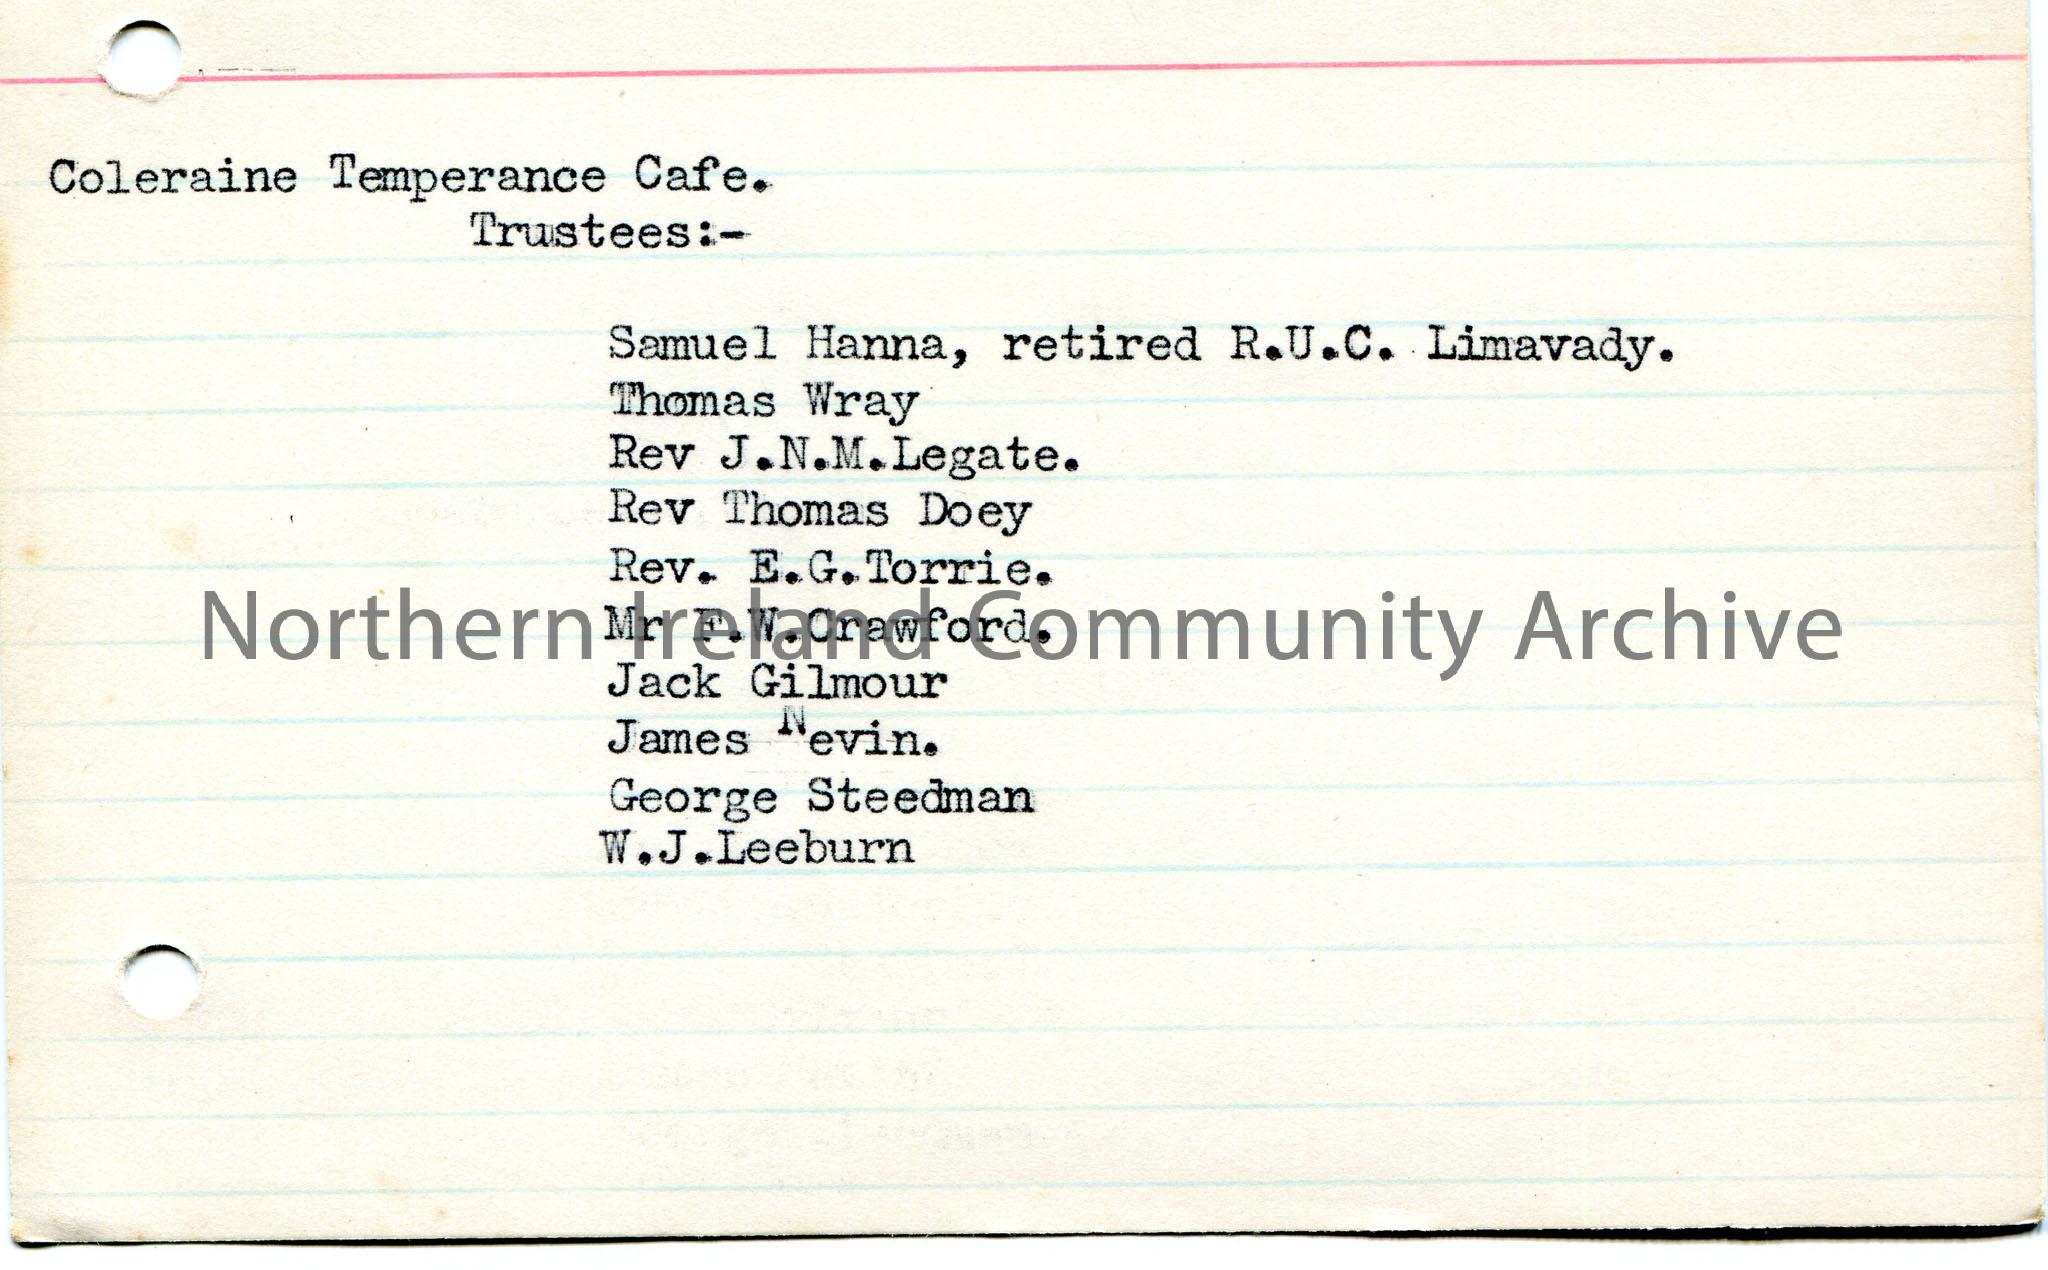 Coleraine Temperance Cafe.
Trustees:-
Samuel Hanna, retired R.U.C. Limavady.
Thomas Wray
Rev J.N.M.Legate.
Rev Thomas Doey
Rev. E.G.Torrie.
Mr F.W.Crawford.
Northern Ireland Community Archive
Jack Gilmour
James Nevin.
George Steedman
W.J.Leeburn